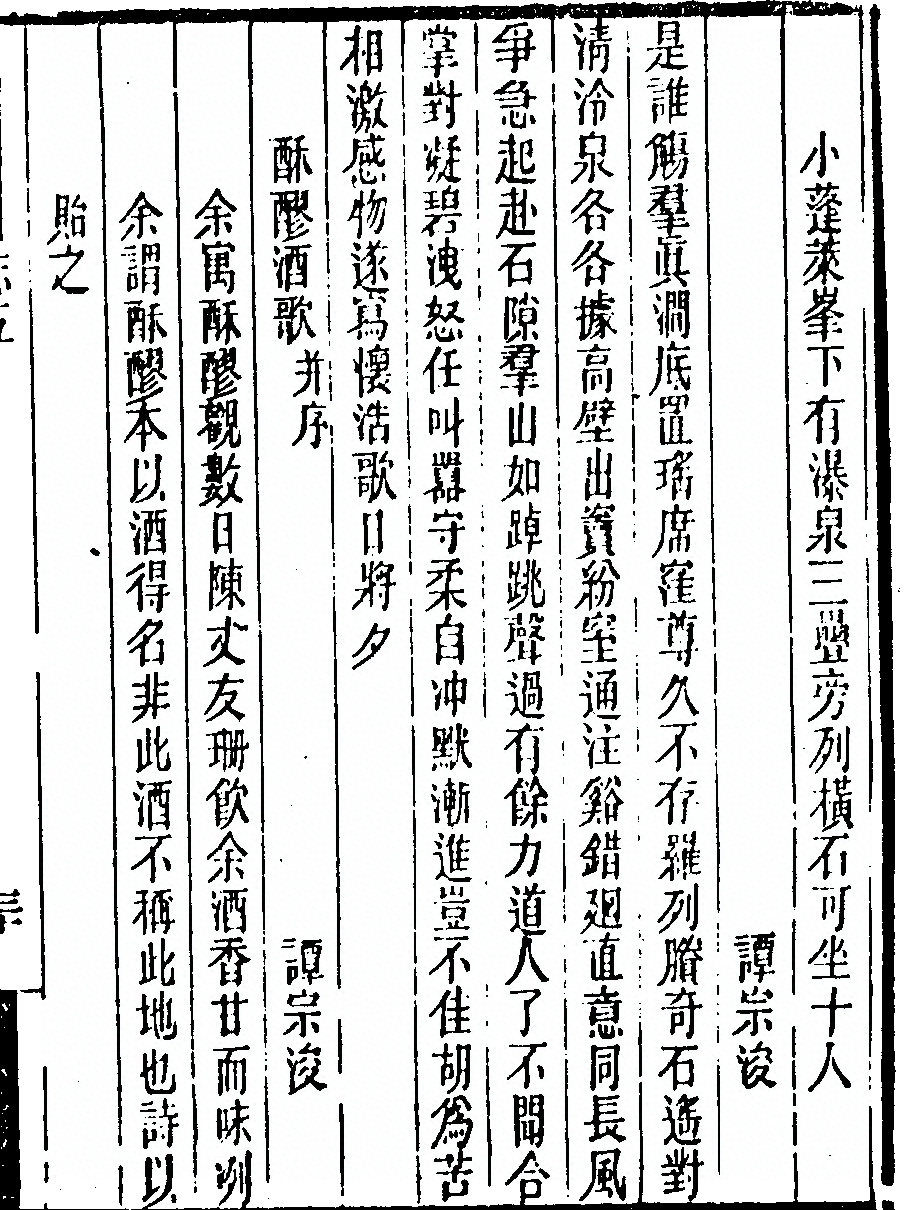 小蓬萊峯下有瀑泉三疊旁列橫石可坐十人
譚宗浚
是誰觴羣眞澗底置瑤席窪尊久不存羅列賸奇石遙對
淸泠泉各各據高壁出竇紛室通注谿錯廻直意同長風
爭急起赴石隙羣山如踔跳聲過有餘力道人了不聞合
掌對凝碧洩怒任叫嚣守柔自冲默漸進豈不佳胡爲苦
相激感物遂寫懷浩歌日將夕
酥醪酒歌 并序
譚宗浚
余寓酥醪觀數日陳丈友珊飮余酒香甘而味冽
余謂酥醪本以酒得名非此酒不稱此地也詩以
貽之